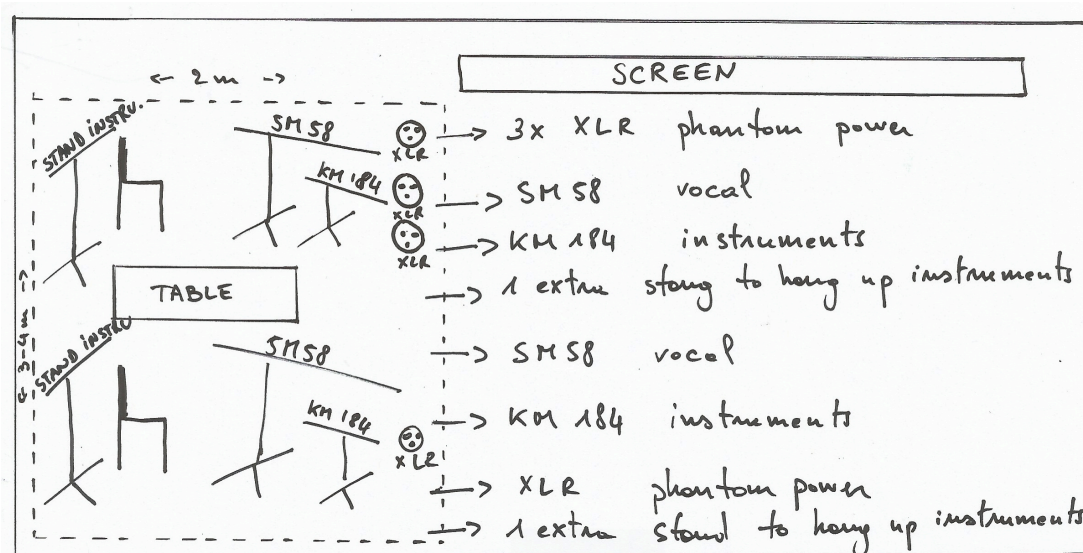 SCREEN
<- 2 m ->
STAND INSTRU.
SM58
XLR
KM 184
XLR
XLR
TABLE
<- 3-4 m ->
STAND INSTRU
SM58
KM 184
XLR
-> 3x XLR phantom power
-> SM58 vocal
-> KM 184 instruments
-> 1 extra stang to hang up instruments
-> SM58 vocal
-> KM 184 instruments
-> XLR phantom power
-> 1 extra stand to hang up instruments